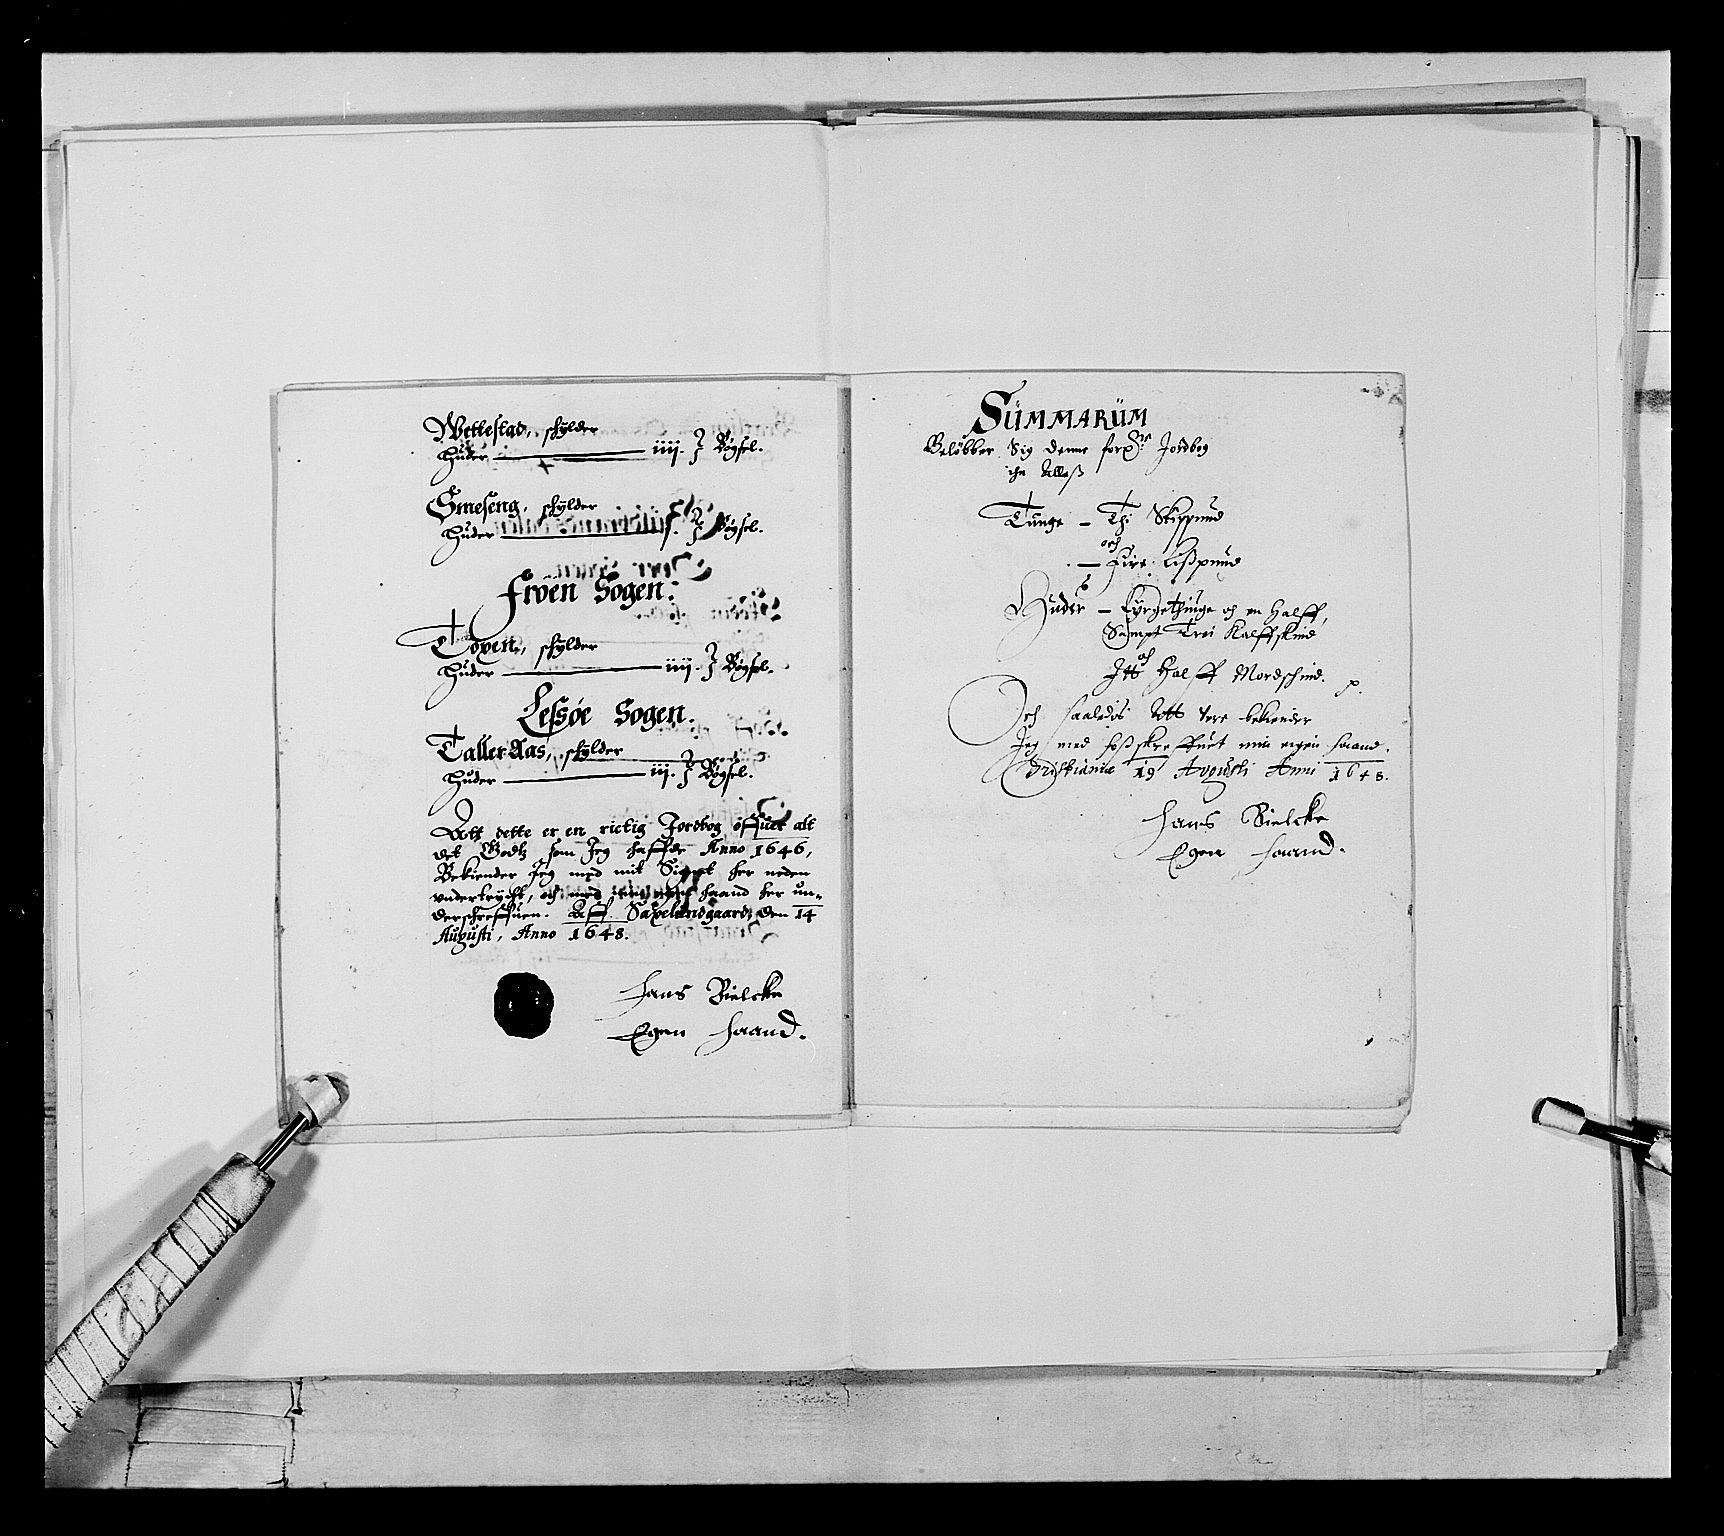 Wettestad, schylder
Huder iiij. J Bøgsel.
Smeseng, schylder
Huder J Bøgsel.
Froen Sogen.
Toxen, schylder
Huder iiij. J Bøgsel.
Lessøe Sogen.
Taller Aas, schylder
Huder iij. J Bøgsel.
Att dette er en rictig Jordbog offuer alt
det Godtz som Jeg haffde Anno 1646,
Bekiender Jeg med mit Signet her neden
vndertrÿcht, och med min egen haand her un-
derschreffuen. Aff Saxelundgaard, den 14
Augusti, Anno 1648.
Hans Bielcke
Egen haand.
SÜMMARÜM
Beløbber Sig denne Jordbog
ihn Alleß
Tunge – Thi Skippund
och
– Fire Lißpund
Huder – och en Halff,
Sampt Trei Kalffskind
och
Jtt Halff Mordschind.
Och saaledis Att vere bekiender
Jeg med min eigen haand.
Christiania 19 Avgusti Anni 1648.
Hans Bielcke
Egen haand.